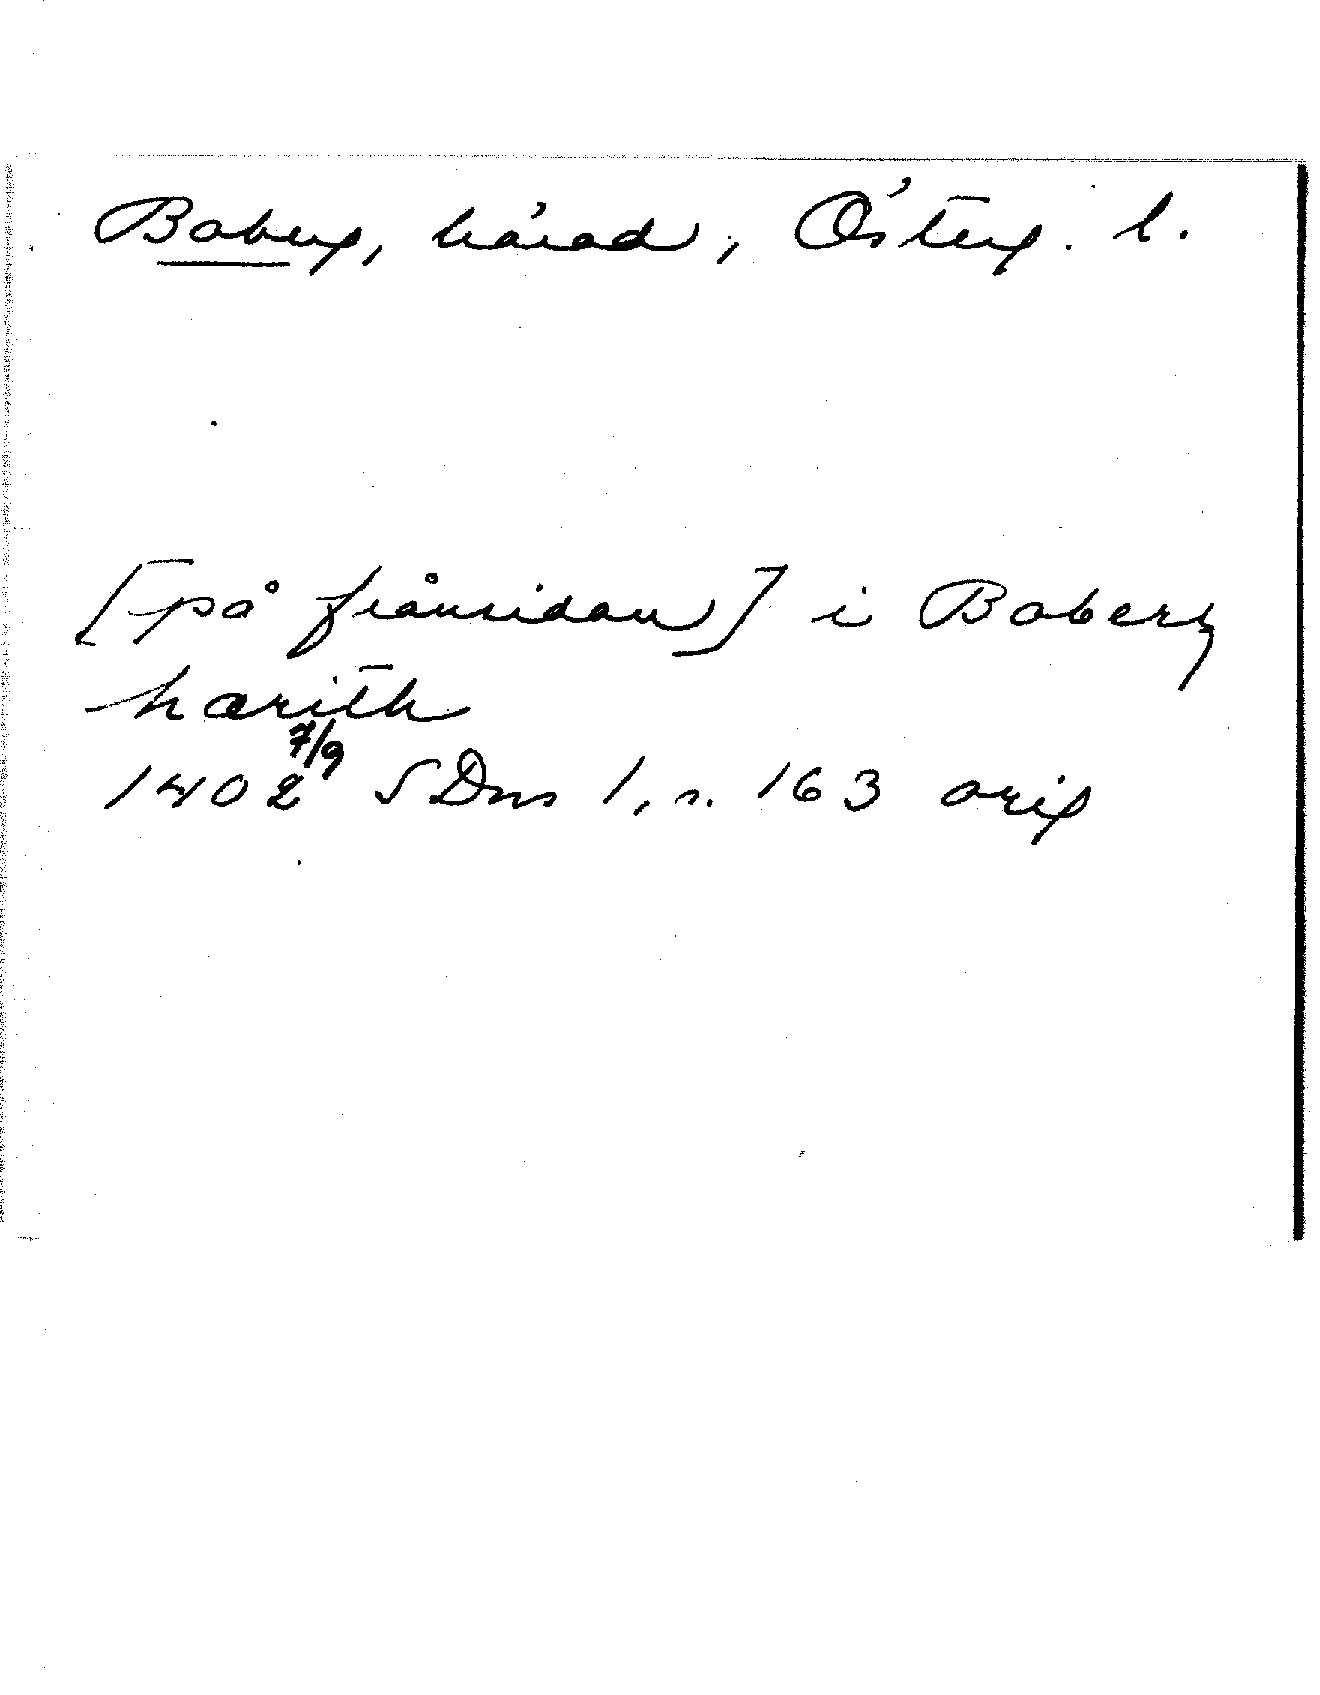 Boberg, härad, Österg. l.
[på frånsidan] i Boberx
hærith
1402 7/9 SDns 1, s. 163 orig